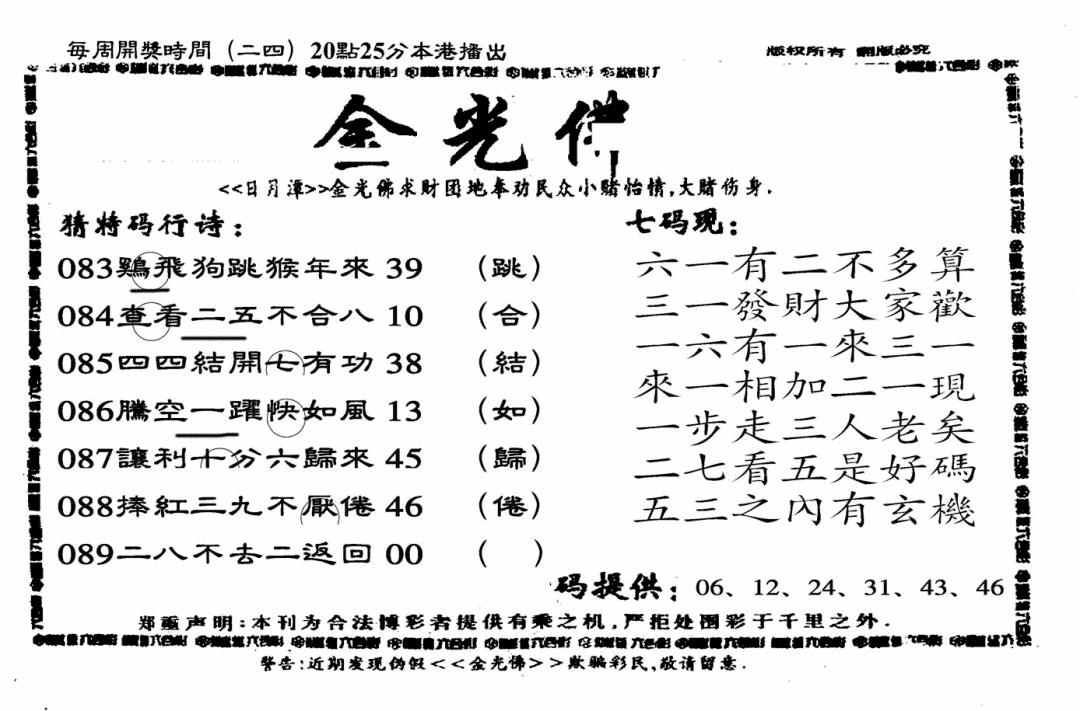 每周開獎時間（二四）20點25分本港播出
版权所有 翻版必究
金光佛
<<日月潭>>金光佛求财团地奉劝民众小赌怡情,大赌伤身.
猜特码行诗：
083鷄飛狗跳猴年來 39 （跳）
084查看二五不合八 10 （合）
085四四結開七有功 38 （結）
086騰空一躍快如風 13 （如）
087讓利十分六歸來 45 （歸）
088捧紅三九不厭倦 46 （倦）
089二八不去二返回 00 （ ）
七码现：
六一有二不多算
三一發財大家歡
一六有一來三一
來一相加二一現
一步走三人老矣
二七看五是好碼
五三之內有玄機
码提供；06、12、24、31、43、46
郑重声明:本刊为合法博彩者提供有乘之机,严拒处图彩于千里之外.
警告:近期发现伪假<<金光佛>>欺骗彩民,敬请留意.